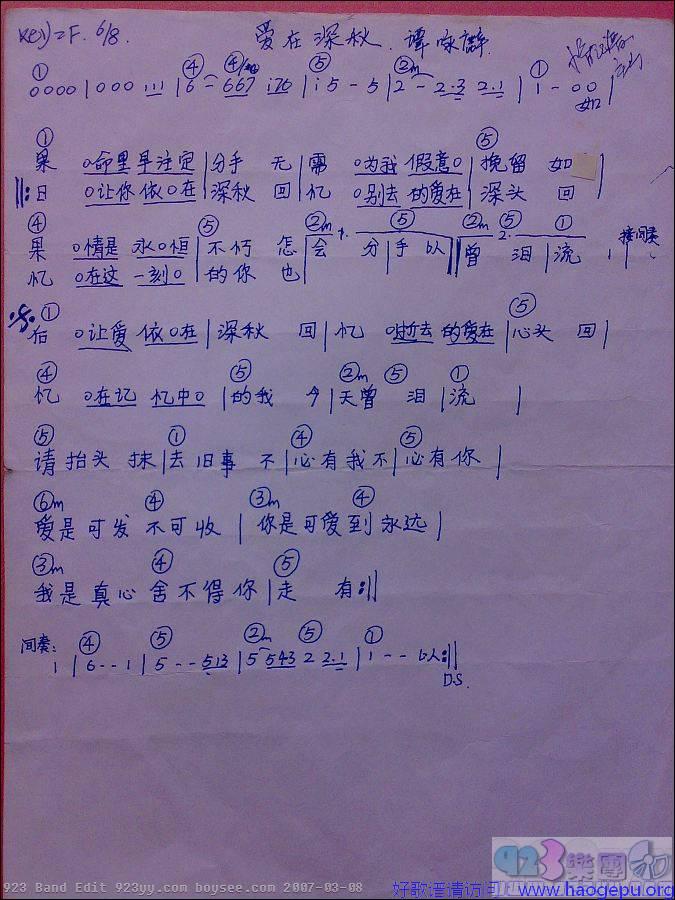 Key=F. 6/8. 爱在深秋. 谭咏麟
① ④ ④/细 ⑤ ②m ①
0000 | 000 111 | 6 - 667 i76 | i 5 - 5 | 2 - 2·3 2·1 | 1 - 00 如 |
① ⑤
果 0命里早注定 | 分手 无 | 需 0为我 假意0 | 挽留 如 |
‖: 日 0让你依0在 | 深秋 回 | 忆 0别去 的爱在 | 深头 回
④ ⑤ ②m 1. ⑤ ②m 2. ⑤ ①
果 0情是 永0恒 | 不朽 怎 | 会 分 | 手 以 ‖ 曾 泪 | 流 , | 接间奏
忆 0在这 一刻0 | 的你 也 |
① ⑤
后 0让爱 依0在 | 深秋 回 | 忆 0逝去 的爱在 | 心头 回 |
④ ⑤ ②m ⑤ ①
忆 0在记 忆中0 | 的我 今 | 天曾 泪 | 流 |
⑤ ① ④ ⑤
请抬头 抹 | 去旧事 不 | 心有我不 | 心有你 |
⑥m ④ ③m ④
爱是可发不可收 | 你是可爱到永远 |
③m ④ ⑤
我是真心舍不得你 | 走 有 :‖
间奏: ④ ⑤ ②m ⑤ ①
1 | 6 - - 1 | 5 - - 513 | 5 543 2 2·1 | 1 - - 以 :‖
D.S.
923 樂團
923 Band Edit 923yy.com boysee.com 2007-03-08
好歌谱请访问: www.haogepu.org